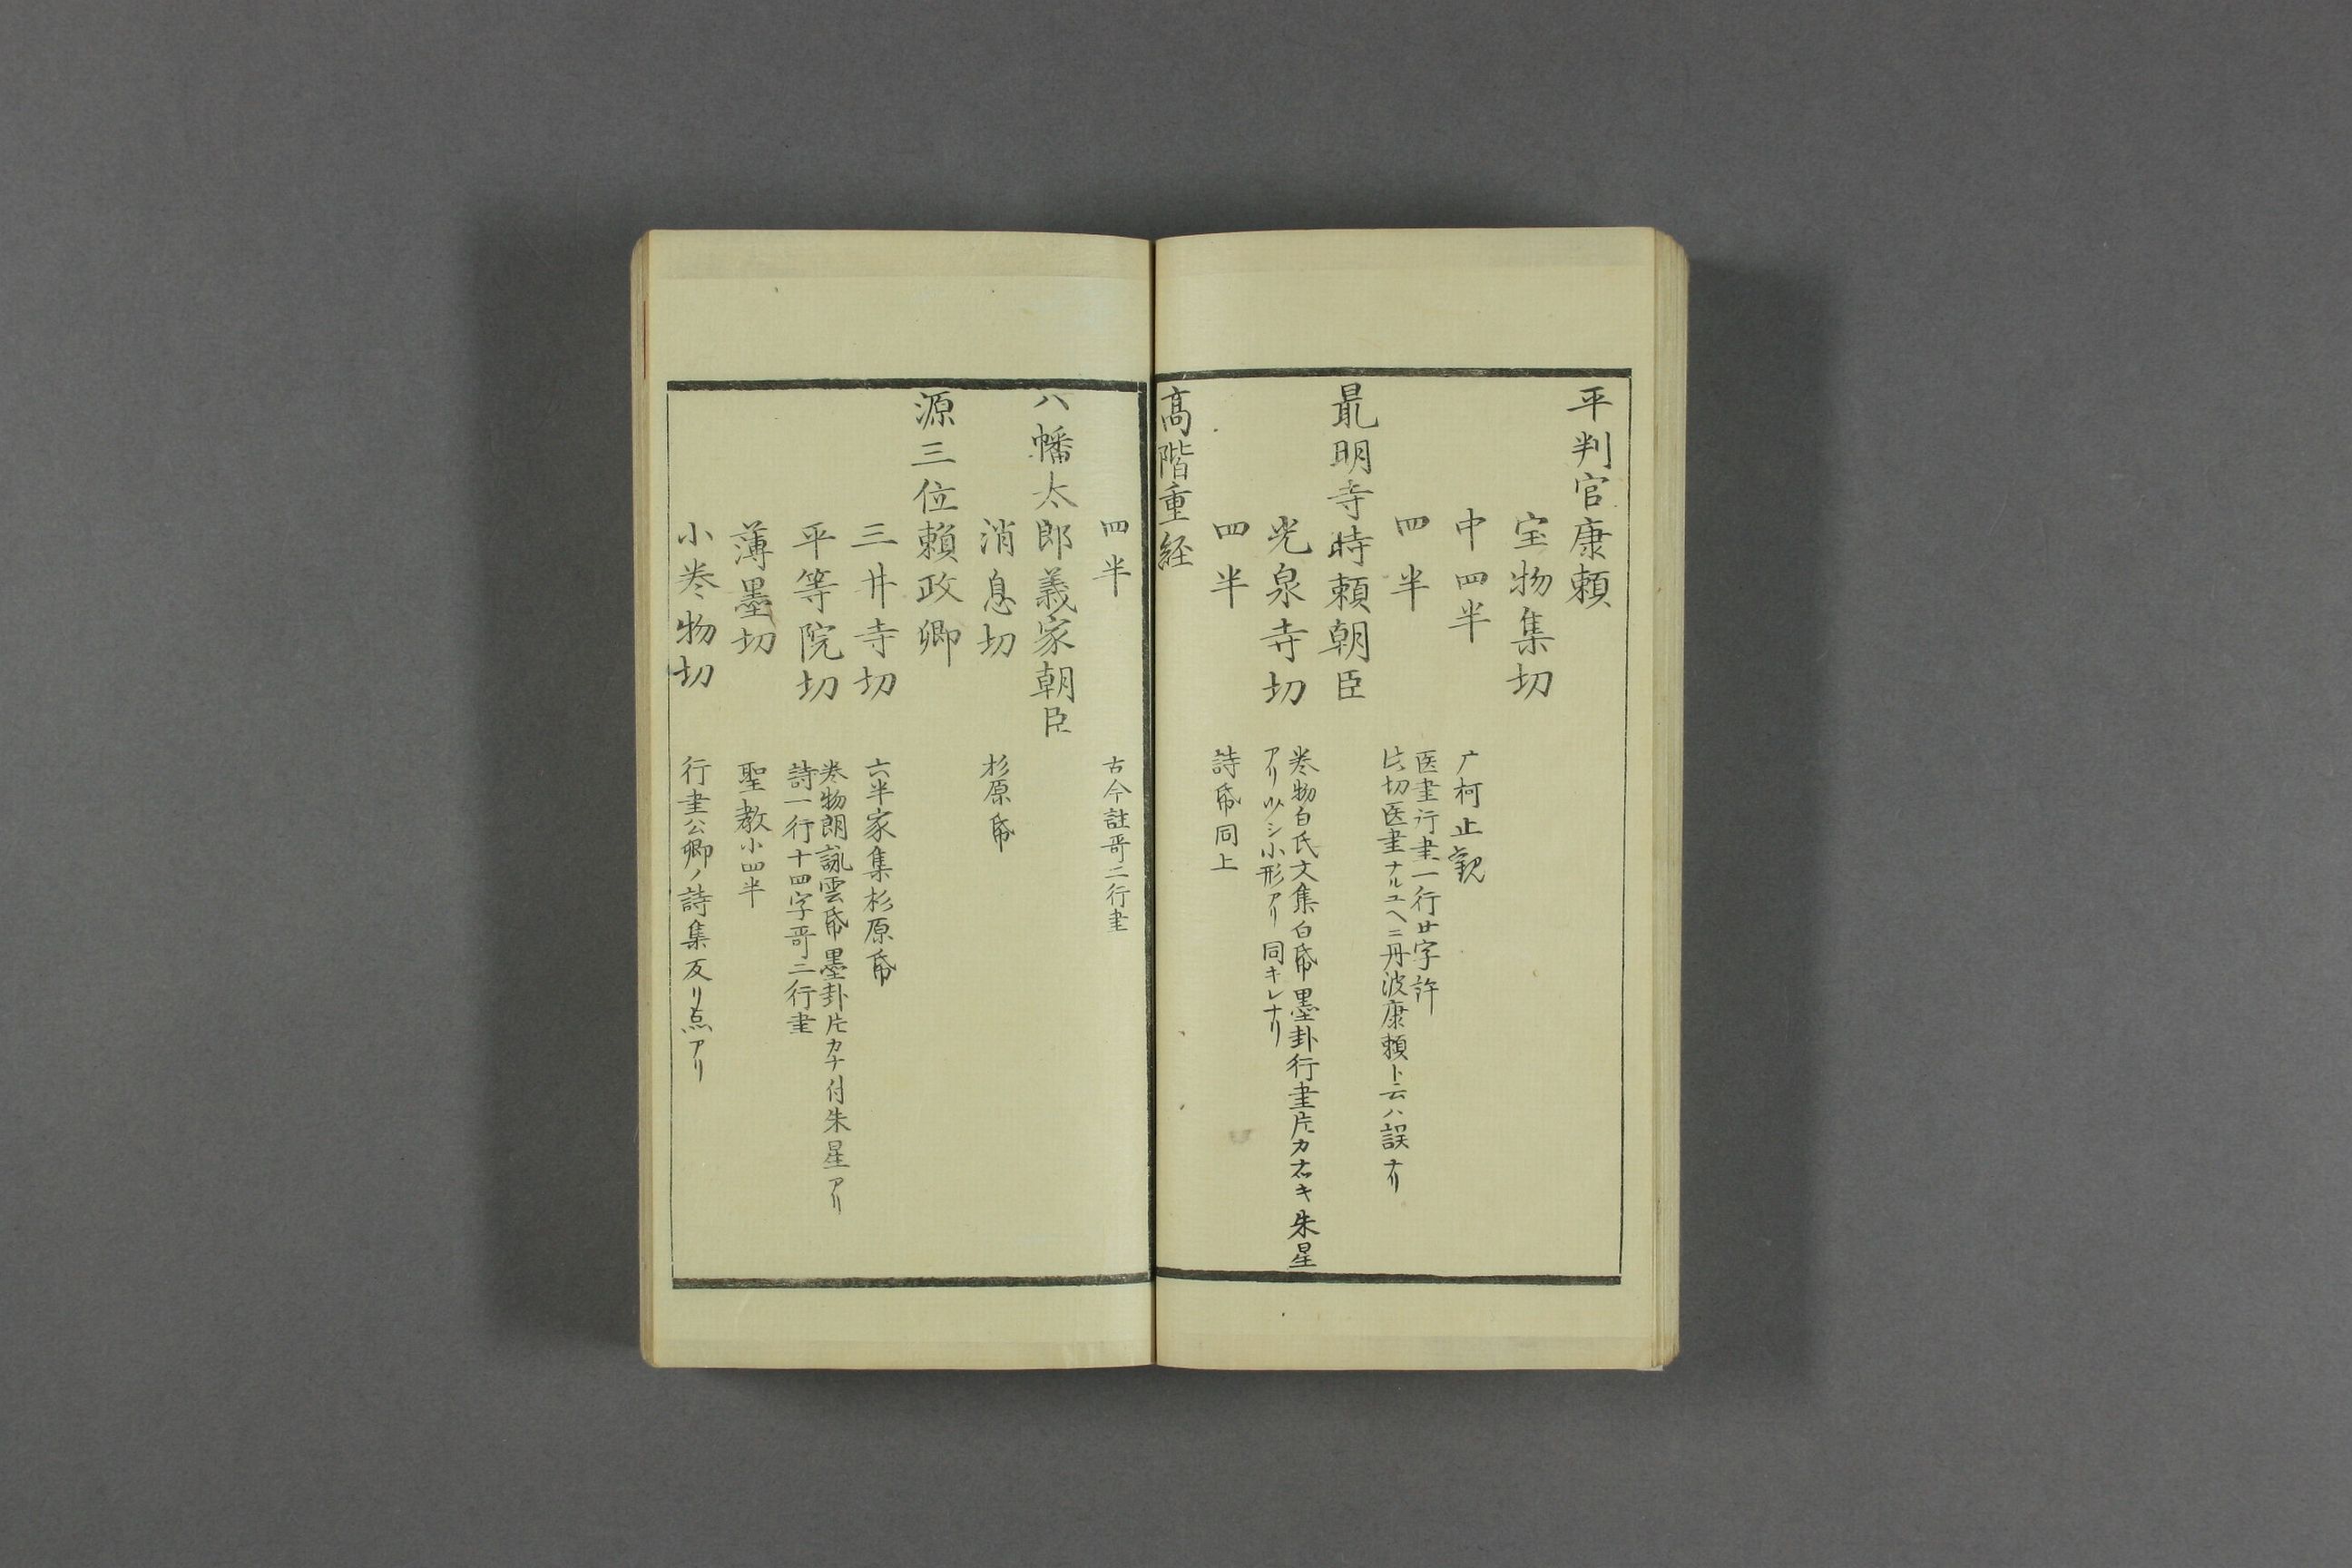 平判官康頼
宝物集切
中四半 广柯止観
四半 医書行書一行廿字許
此切医書ナルユヘニ丹波康頼ト云ハ誤ナリ
最明寺時頼朝臣
光泉寺切 巻物白氏文集白帋墨卦行書片カナツキ朱星
アリ少シ小形アリ同キレナリ
四半 詩帋同上
高階重経
四半 古今註哥二行書
八幡太郎義家朝臣
消息切 杉原帋
源三位頼政卿
三井寺切 六半家集杉原帋
平等院切 巻物朗詠雲帋墨卦片カナ付朱星アリ
詩一行十四字哥二行書
薄墨切 聖教小四半
小巻物切 行書公卿ノ詩集反リ点アリ